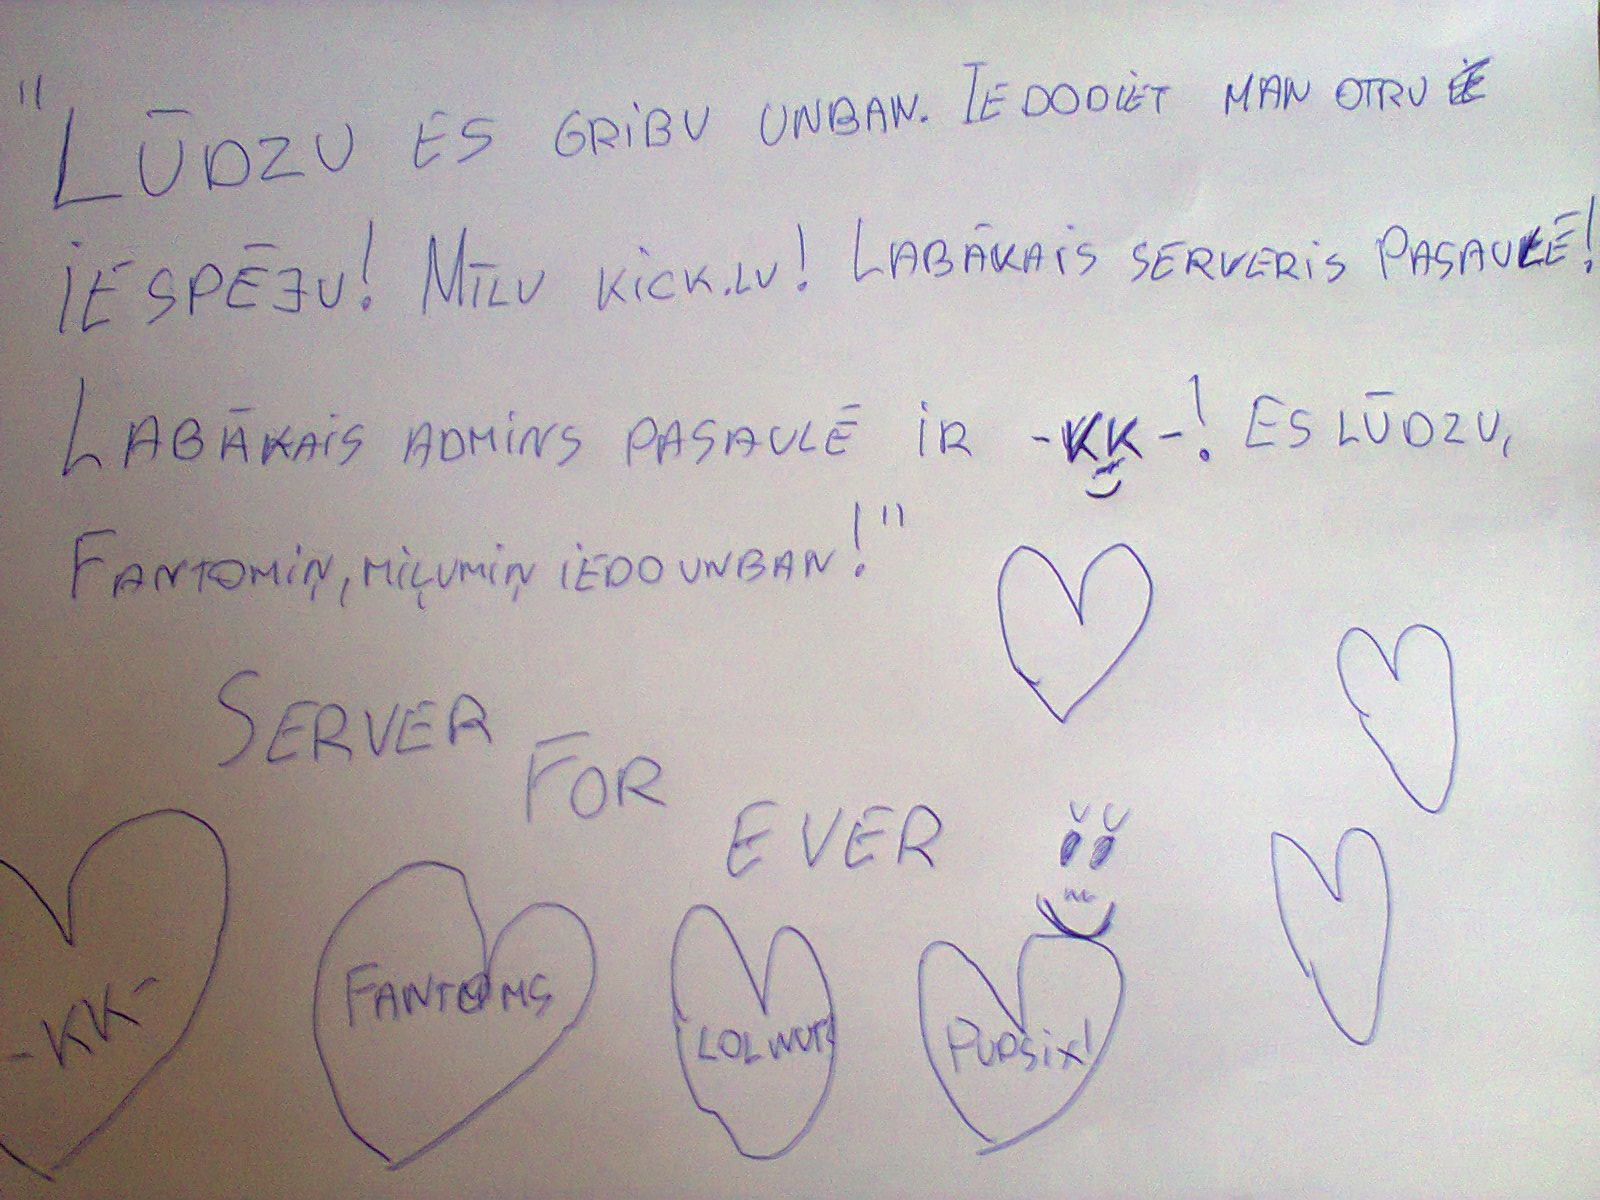 "LŪDZU ES GRIBU UNBAN. IEDODIET MAN OTRU
IESPĒJU! MĪLU KICK.LV! LABĀKAIS SERVERIS PASAULĒ!
LABĀKAIS ADMINS PASAULĒ IR -KK-! ES LŪDZU,
FANTOMIŅ, MIĻUMIŅ IEDO UNBAN!"
SERVER
FOR
EVER
-KK-
FANTOMS
LOLWUT
PUPSIX!